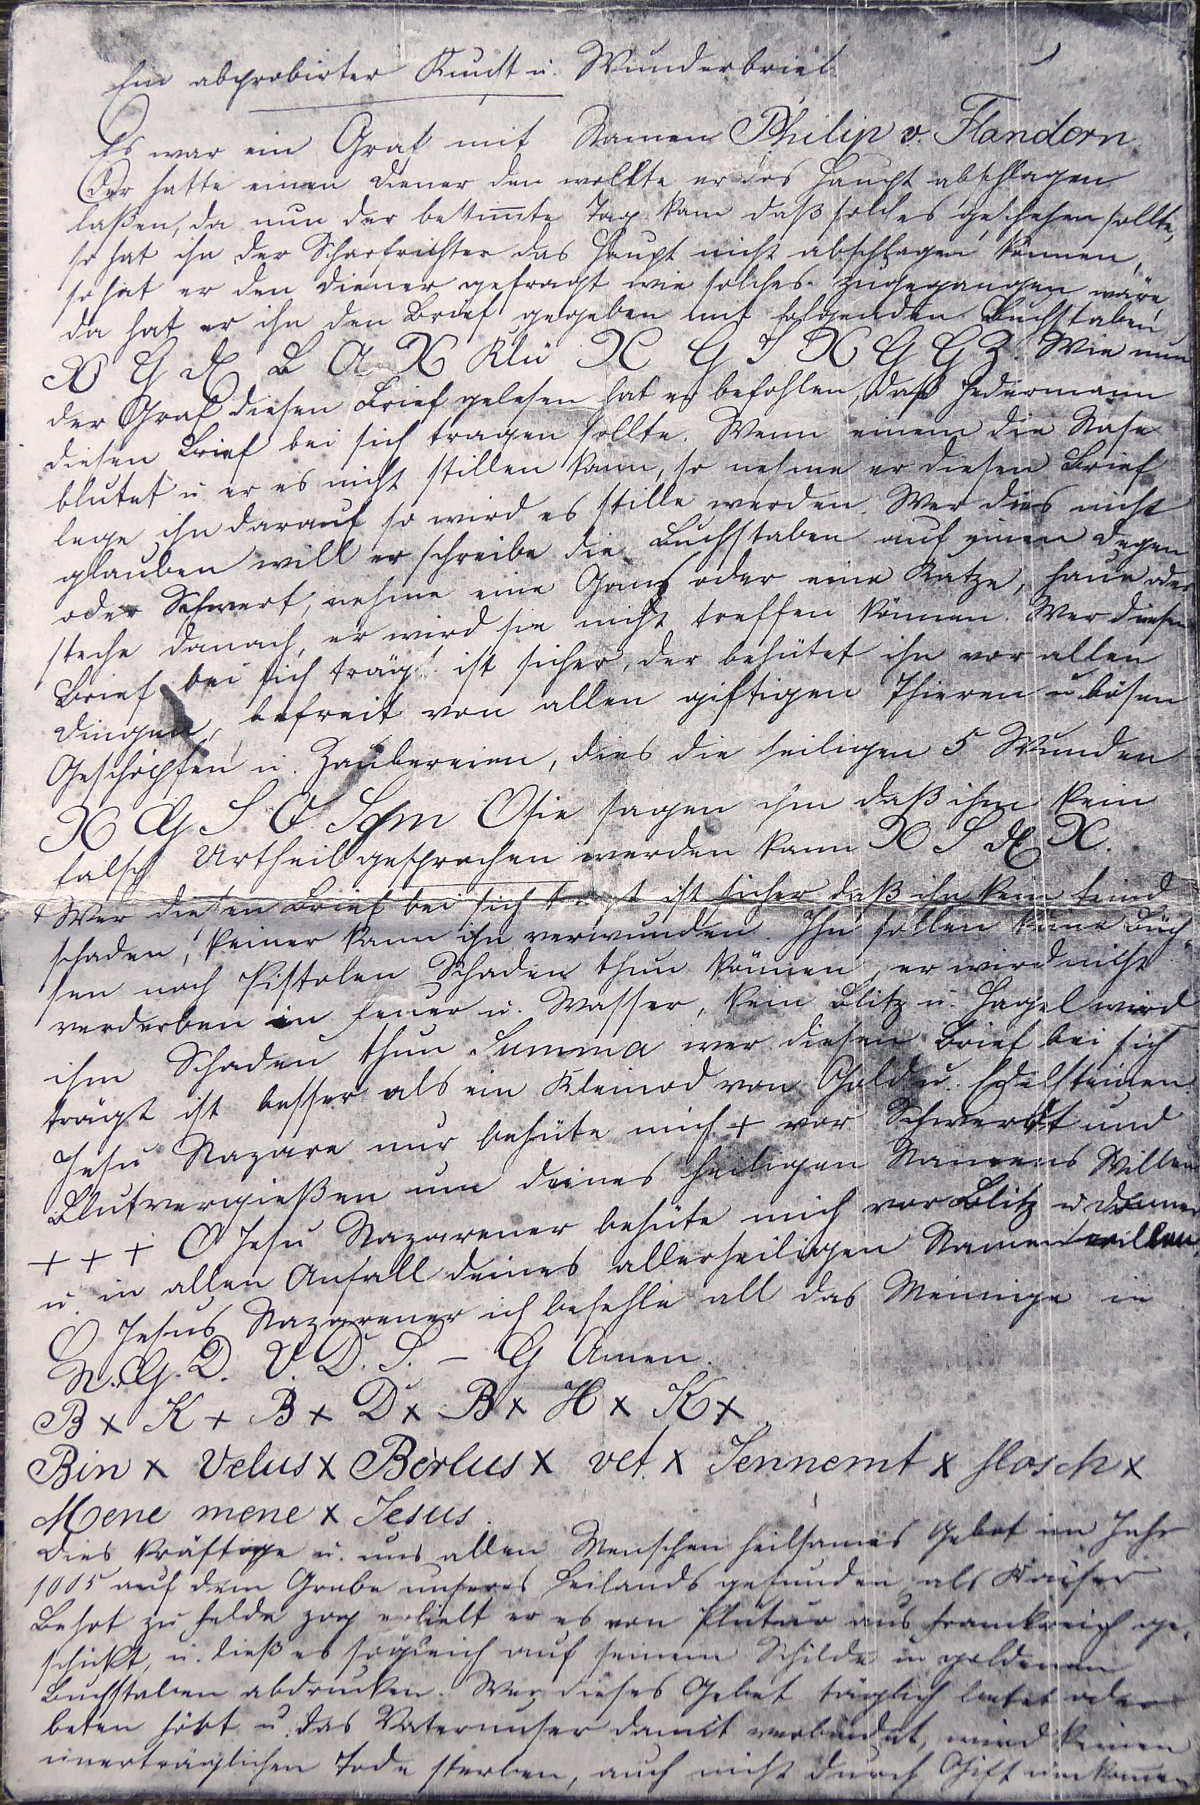 Ein abprobirter Kunst u. Wunderbrief
Es war ein Graf mit Namen Philip v. Flandern.
Der hatte einen Diener den wollte er das Haupt abschlagen
laßen, da nun der bestim̅te Tag kam daß solches geschehen sollte,
so hat ihn der Scharfrichter das Haupt nicht abschlagen können,
so hat er den Diener gefragt wie solches zugegangen wäre
da hat er ihn den Brief gegeben mit folgenden Buchstaben
G B A X Klü X G S X G G Z. Wie nun
der Graf diesen Brief gelesen hat er befohlen, daß Jedermann
diesen Brief bei sich tragen sollte. Wenn einem die Nase
blutet u er es nicht stillen kann, so nehme er diesen Brief
lege ihn darauf so wird es stille werden. Wer dies nicht
glauben will er schreibe die Buchstaben auf einen Degen
oder Schwert, nehme eine Gans oder eine Katze, haue oder
steche danach, er wird sie nicht treffen können. Wer diesen
Brief bei sich trägt ist sicher, der behütet ihn vor allen
Dingen, befreit von allen giftigen Thieren u bösen
Geschöpfen u. Zaubereien, dies die heiligen 5 Wunden
X G S sagen ihm daß ihm kein
falsch Urtheil gesprochen werden kann X S X.
Wer diesen Brief bei sich trägt ist sicher daß ihn kein Feind
schaden, keiner kann ihn verwunden. Ihn sollen keine Büch-
sen noch Pistolen Schaden thun können, er wird nicht
verderben in Feuer u. Wasser, kein Blitz u. Hagel wird
ihm Schaden thun Summa wer diesen Brief bei sich
trägt ist besser als ein Kleinod von Gold u. Edelsteinen
Jesu Nazare nur behüte mich + vor Schwerdt und
Blutvergießen um deines heiligen Namens Willen
+ + + O Jesu Nazarener behüte mich vor Blitz u Donner
u. in allen Anfall deines allerheiligen Namen willen
O Jesus Nazarener ich befehle all das Meinige in
N. G. D. V. D. S. – G Amen.
B x K + B x D x B x H x K x
Bin x Velus x Berlus x vet. x Tennemt x x
Mene mene x Jesus.
Dies kräftige u. uns allen Menschen heilsames Gebet im Jahr
1005 auf dem Grabe unseres Heilands gefunden als Kaiser
zu Felde zog erhielt er es von aus Frankreich ge-
schickt, u. ließ es sogleich auf seinem Schilde in goldenen
Buchstaben abdrucken. Wer dieses Gebet täglich betet oder
beten hört u das Vaterunser damit verbindet, wird keinen
unerträglichen Tode sterben, auch nicht durch Gift umkomen